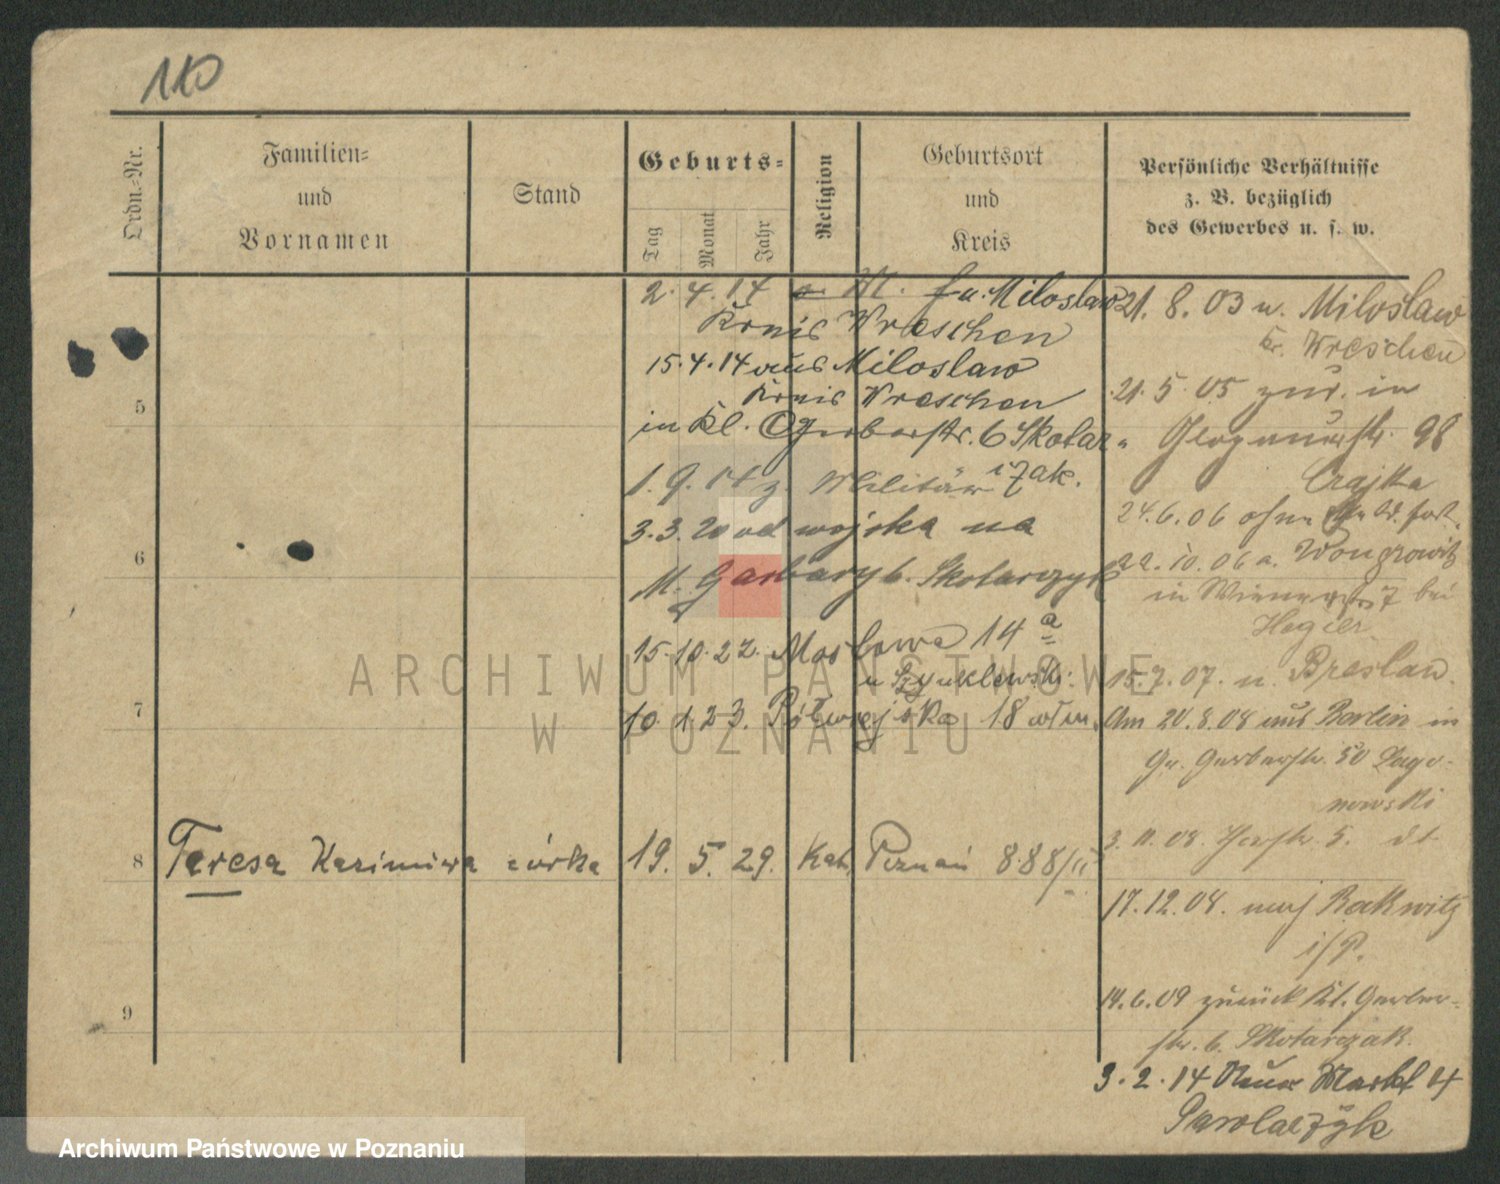 110
Ordn.-Nr.
Familien-
und
Vornamen
Stand
Geburts-
Tag
Monat
Jahr
Religion
Geburtsort
und
Kreis
Persönliche Verhältnisse
z. B. bezüglich
des Gewerbes u. s. w.
2. 4. 14 M. Miloslaw
Kreis Wreschen
15. 4. 14 aus Miloslaw
Kreis Wreschen
in Kl. Gerberstr. 6 Skotar
1. 9. 14 z. Militär
3. 3. 20 od wojska na
M. Garbary 6. Skotarczyk
15. 10. 22. Mostowa 14 a
u Szynklewski
10. 1. 23. Półwiejska 18 włm.
5
6
7
8 Teresa Kazimiera córka 19. 5. 29. Kat. Poznań 888/II
9
21. 8. 03 n. Miloslaw
Kr. Wreschen
21. 5. 05 zur. in
Glogauerstr. 98
Czajka
24. 6. 06 ohne
22. 10. 06 a. Wongrowitz
in 7 bei
Hegier
15. 7. 07. n. Breslau.
Am 20. 8. 08 aus Berlin in
Gr. Gerberstr. 50
nowski
3. 11. 08. 5. dt
17. 12. 08. nach Rakwitz
i/P.
14. 6. 09 zurück Kl. Gerber-
str. 6. Skotarczak.
3. 2. 14 Neuer Markt 4
ARCHIWUM PAŃSTWOWE
W POZNANIU
Archiwum Państwowe w Poznaniu